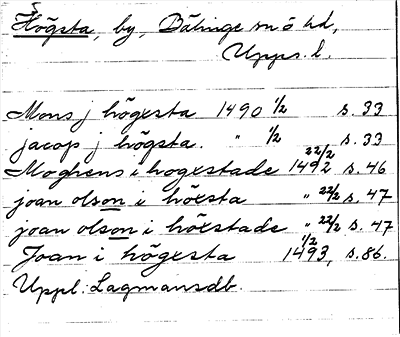 Högsta, by, Bälinge sn ö hd,
Upps. l.
Mons j högesta 1490 1/2 s. 33
jacop j högsta. " 1/2 s. 33
Moghens i hogestade 1492 22/2 s. 46
joan olson i höesta " 22/2 s. 47
joan olson i höestade " 22/2 s. 47
Joan i högesta 1493, 1/2 s. 86.
Uppl. Lagmansdb.